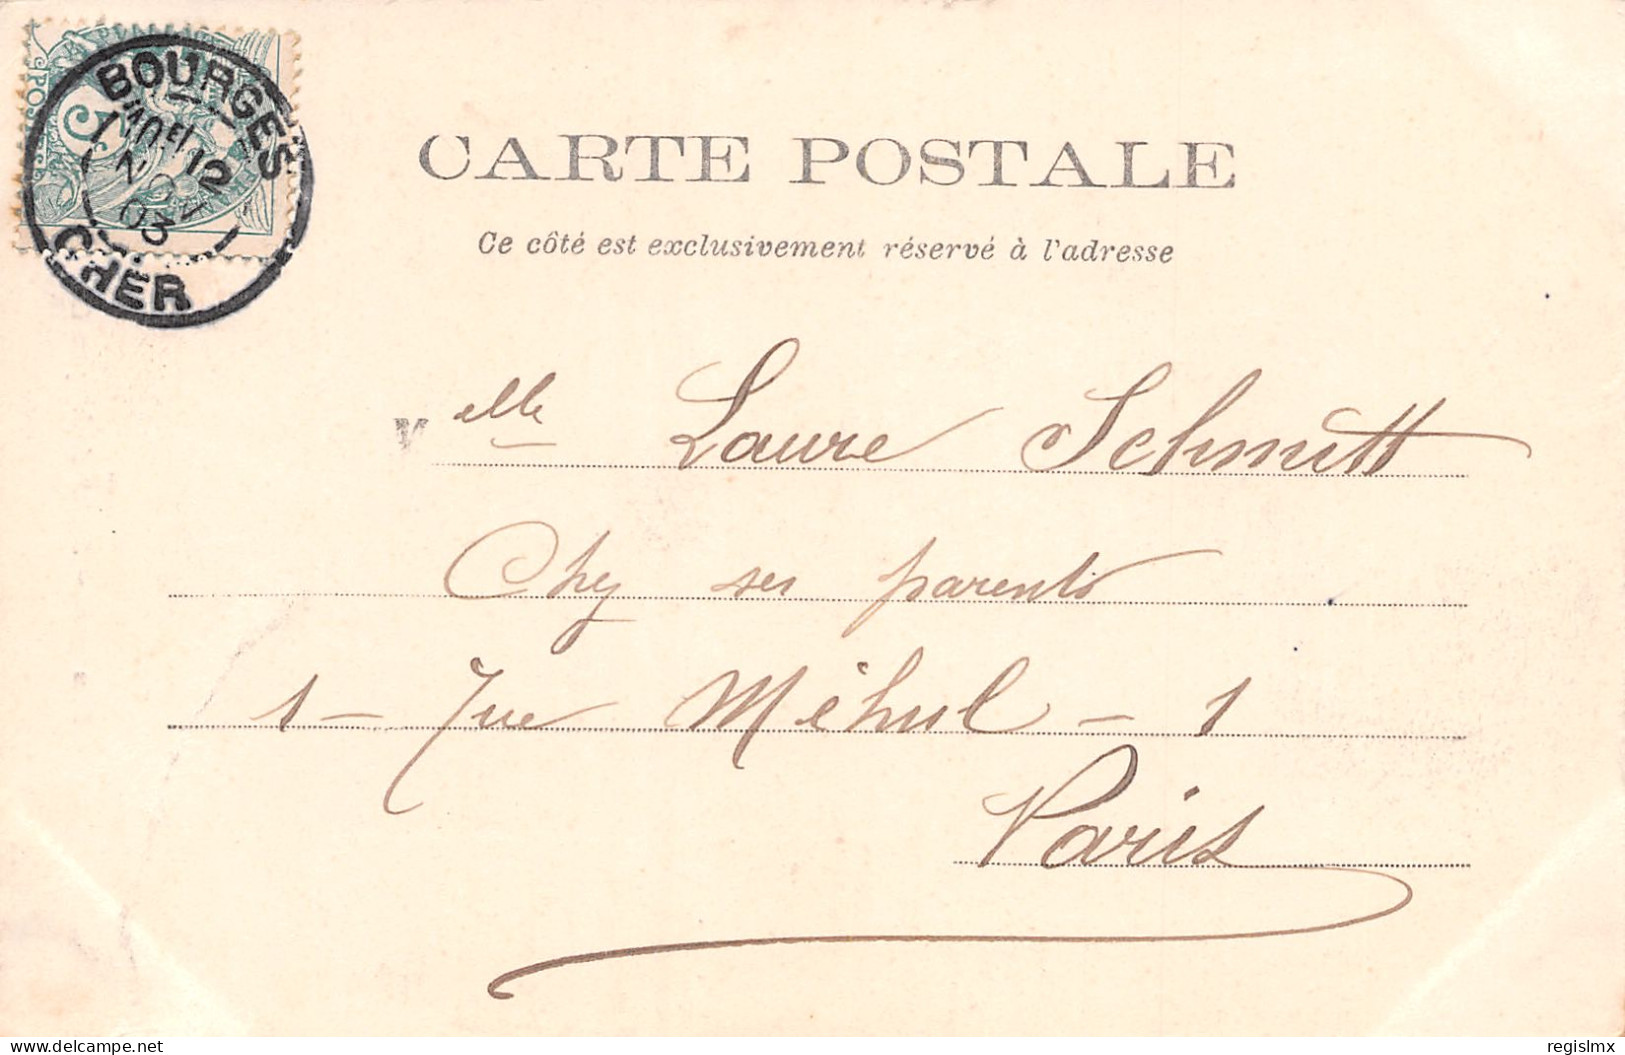 BOURGES
CHER
03
5
CARTE POSTALE
Ce côté est exclusivement réservé à l'adresse
M elle Laure Schmitt
Chez ses parents
1 - rue Méhul - 1
Paris
delcampe.net
regislmx